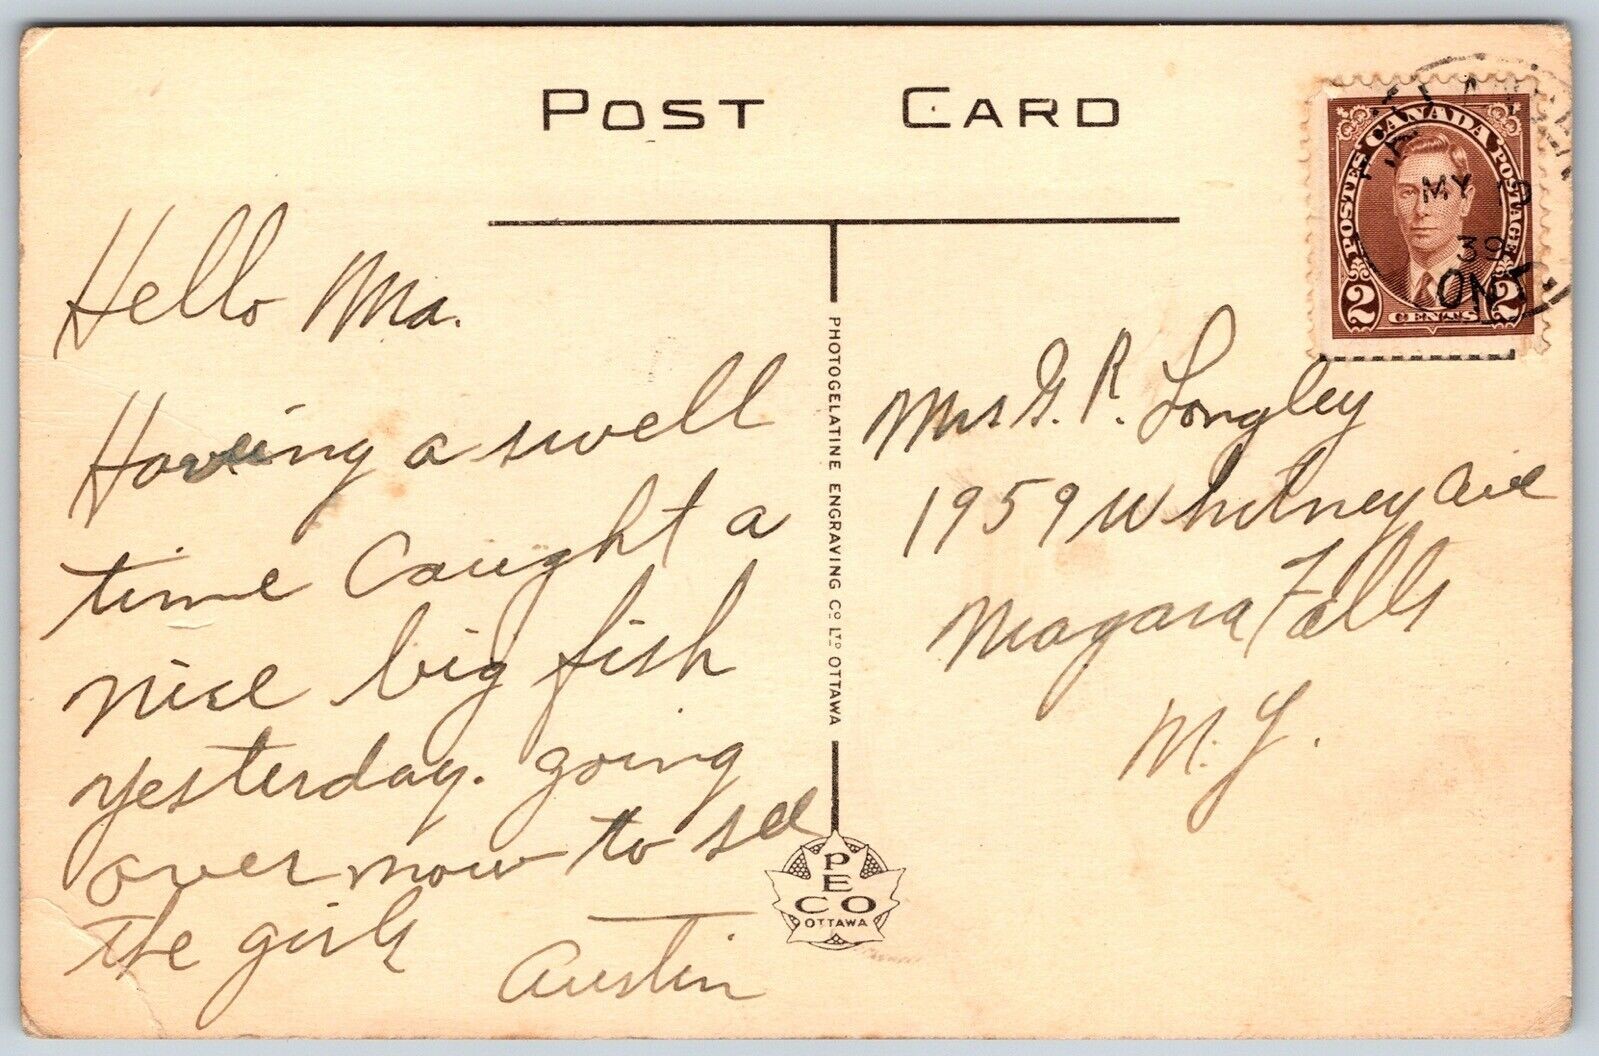 POST CARD
Hello Ma.
Having a swell
time Caught a
nice big fish
yesterday. going
over now to see
the girls
Austin
PHOTOGELATINE ENGRAVING CO LTD OTTAWA
PECO
OTTAWA
Mrs G. R. Longley
1959 Whitney Ave
Niagara Falls
N.Y.
POSTES CANADA POSTAGE
2 CENTS 2
MY
39
ONT